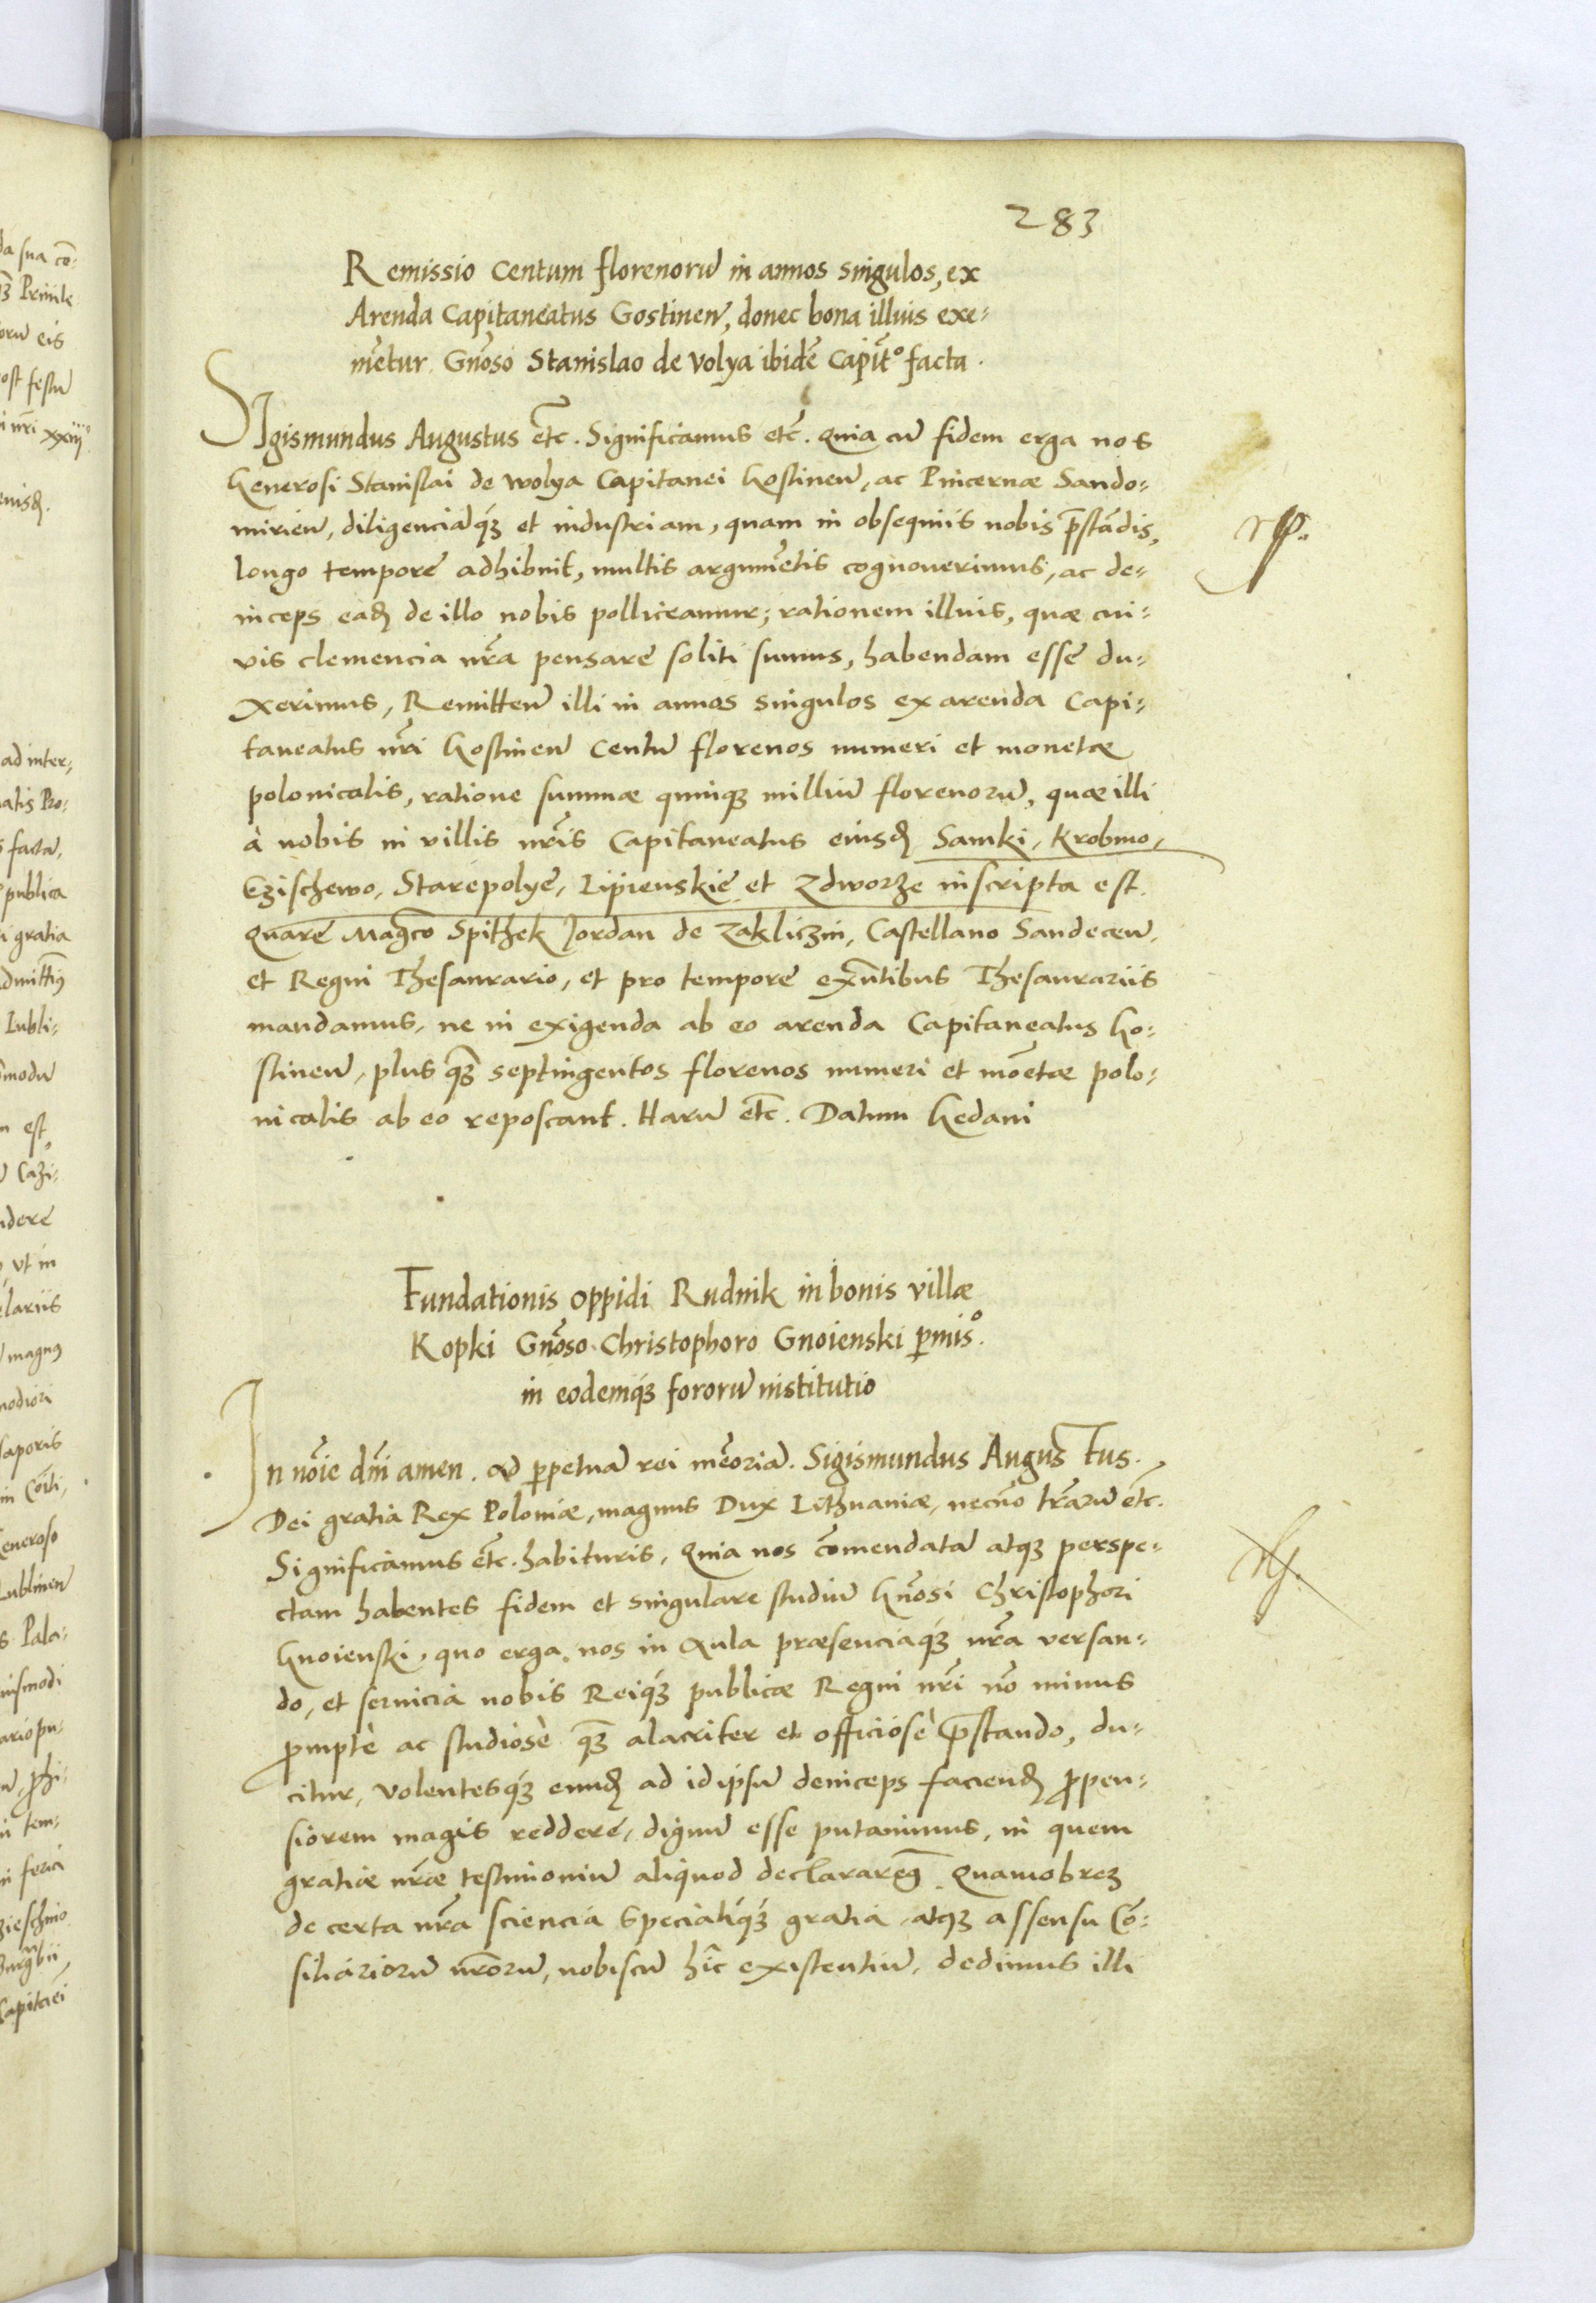 283
Remissio Centum florenorū in annos singulos, ex
Arenda Capitaneatus Gostineñ, donec bona illius exe-
mētur. Gnōso Stanislao de Volya ibidē Capiīt° facta.
Sigismundus Augustus etc̄. Significamus etc̄. Quia cū fidem erga nos
Generosi Stanislai de Wolya Capitanei Gostineñ, ac Pincernæ Sando-
mirieñ, diligenciāq́ꝫ et industriam, quam in obsequiis nobis p̄stādis,
longo tempore adhibuit, multis argumētis cognouerimus, ac de-
inceps eadꝫ de illo nobis polliceamur; rationem illius, quæ cui-
vis clemencia nr̄a pensare soliti sumus, habendam esse du-
xerimus, Remitteñ illi in annos singulos ex arenda Capi-
taneatus nr̄i Gostineñ Centū florenos numeri et monetæ
polonicalis, ratione summæ quinqꝫ milliū florenorū, quæ illi
à nobis in villis nr̄is Capitaneatus eiusdꝫ Samki, Krobmo,
Czischewo, Starepolye, Lipienskie et Zdworze inscripta est.
Quare Mag̃co Spithek Jordan de Zakliczin, Castellano Sandeceñ,
et Regni Thesaurario, et pro tempore exn̄tibus Thesaurariis
mandamus, ne in exigenda ab eo arenda Capitaneatus Go-
stineñ, plus qꝫ̄ septingentos florenos numeri et mōetæ polo-
nicalis ab eo reposcant. Harū etc̄. Datum Gedani
Fundationis oppidi Rudnik in bonis villæ
Kopki Gnōso Christophoro Gnoienski ꝑmis°.
in eodemq́ꝫ fororū institutio
In nōie dn̄i amen. Ad ꝑpetuā rei mēoriā. Sigismundus Augustus.
Dei gratia Rex Poloniæ, magnus Dux Lithuaniæ, necnō tr̄arū etc̄.
Significamus etc̄. habituris, Quia nos cōmendatā atqꝫ perspe-
ctam habentes fidem et singulare studiū Gnōsi Christophori
Gnoienski, quo erga nos in Aula præsenciaq́ꝫ nr̄a versan-
do, et seruicia nobis Reiq́ꝫ publicæ Regni nr̄i nō minus
ꝓmptè ac studiosè qꝫ̄ alacriter et officiosè p̄stando, du-
citur, volentesq́ꝫ eundꝫ ad id ipsū deinceps faciendꝫ ꝓpen-
siorem magis reddere, dignū esse putauimus, in quem
gratiæ nr̄æ testimoniū aliquod declararem̄9 Quamobreꝫ
de certa nr̄a sciencia specialiq́ꝫ gratia, atqꝫ assensu Cō-
siliariorū nr̄orū, nobiscū hîc existentiū, dedimus illi